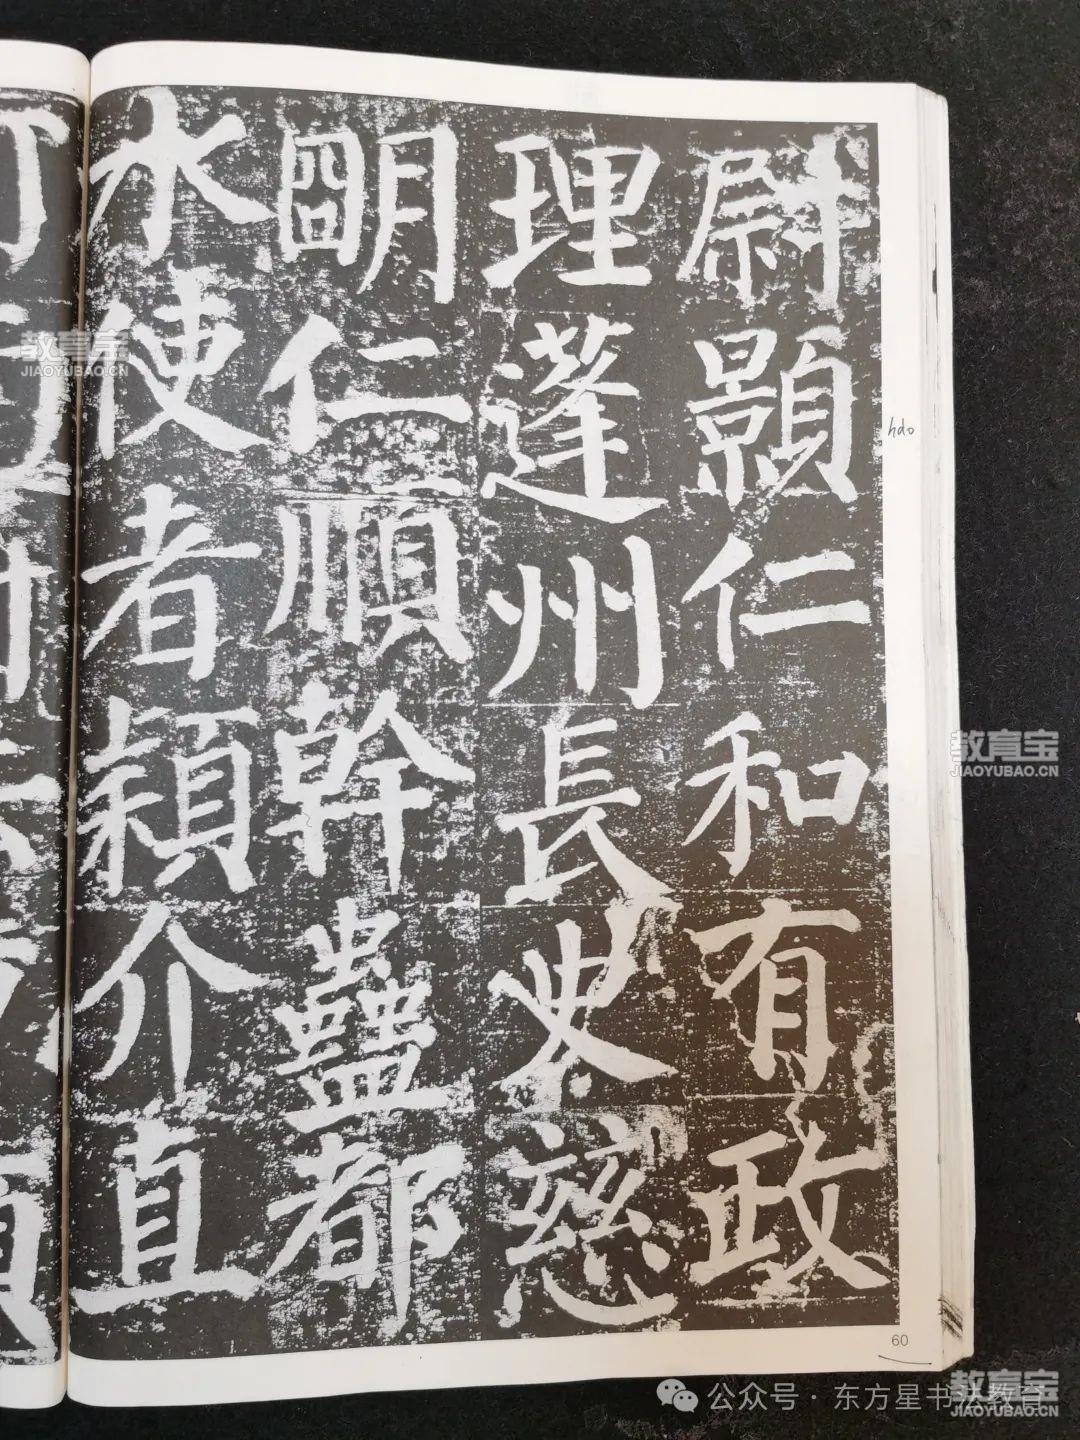 尉顥仁和有政
理蓬州長史慈
明仁順幹蠱都
水使者潁介直
hdo
60
教育宝
JIAOYUBAO.CN
教育宝
JIAOYUBAO.CN
公众号 · 东方星书法教育
教育宝
JIAOYUBAO.CN